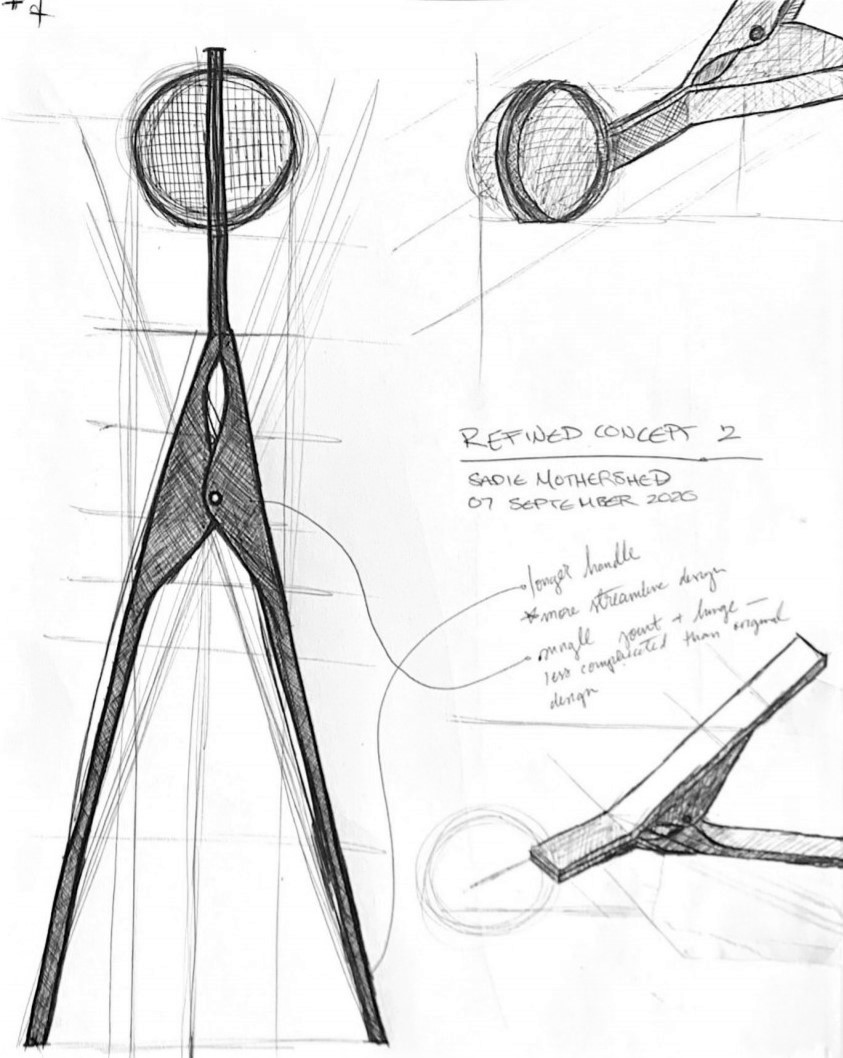 REFINED CONCEPT 2
SADIE MOTHERSHED
07 SEPTEMBER 2020
longer handle
more streamline design
single joint + hinge —
less complicated than original
design